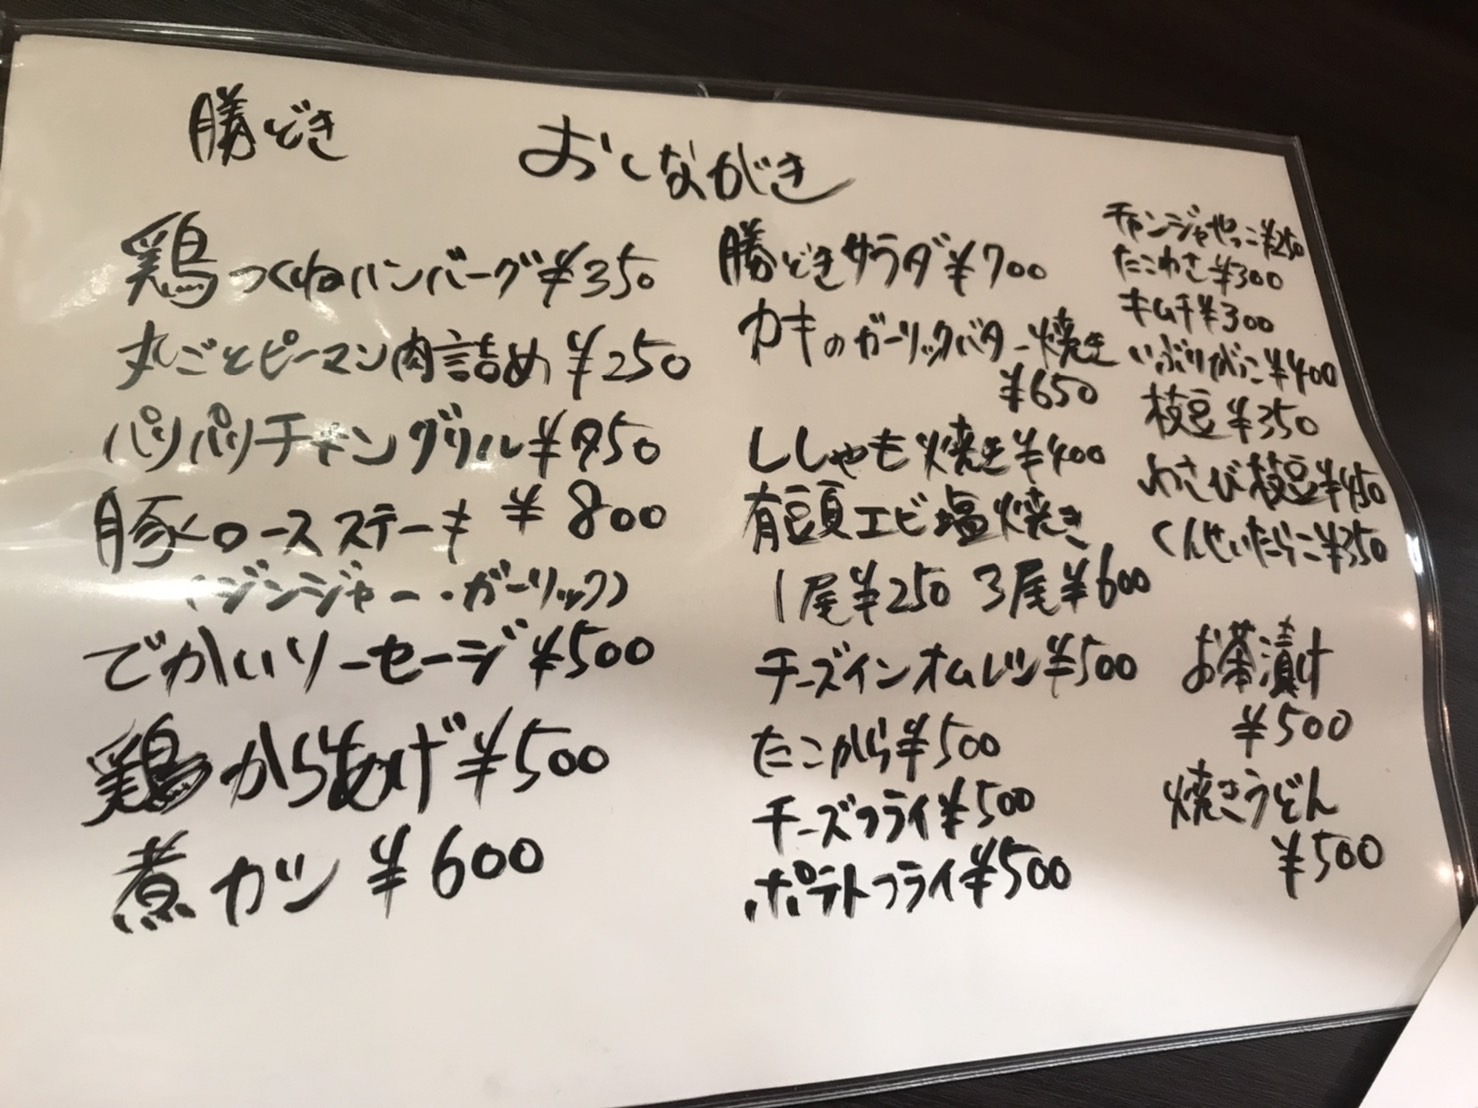 勝どき
おしながき
鶏つくねハンバーグ¥350
丸ごとピーマン肉詰め¥250
パリパリチキングリル¥850
豚ロースステーキ ¥800
(ジンジャー・ガーリック)
でかいソーセージ¥500
鶏からあげ¥500
煮カツ¥600
勝どきサラダ¥700
カキのガーリックバター焼き
¥650
ししゃも焼き¥400
有頭エビ塩焼き
1尾¥250 3尾¥600
チーズインオムレツ¥500
たこから¥500
チーズフライ¥500
ポテトフライ¥500
チャンジャやっこ¥250
たこわさ¥300
キムチ¥300
いぶりがっこ¥400
枝豆¥350
わさび枝豆¥450
くんせいたらこ¥350
お茶漬け
¥500
焼きうどん
¥500